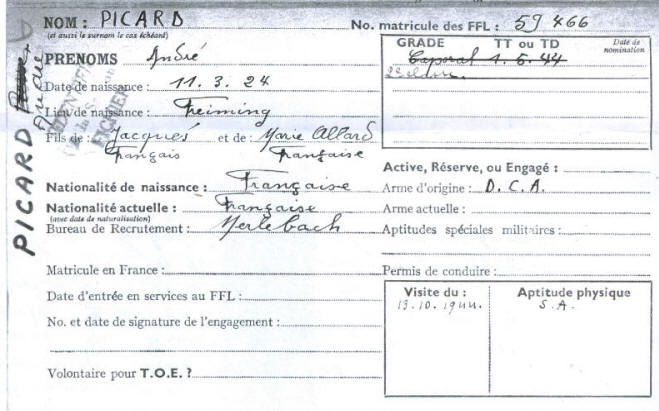 NOM : PICARD
(et aussi le surnom le cas échéant)
No. matricule des FFL : 57 466
PRENOMS André
GRADE TT ou TD Date de nomination
Caporal 1. 6. 44
Date de naissance : 11. 3. 24
Lieu de naissance : Freiming
Fils de : Jacques et de : Marie Allard
Français Française
Active, Réserve, ou Engagé :
Nationalité de naissance : Française
Arme d'origine : D.C.A.
Nationalité actuelle : Française
(avec date de naturalisation)
Arme actuelle :
Bureau de Recrutement : Merlebach
Aptitudes spéciales militaires :
Matricule en France :
Permis de conduire :
Date d'entrée en services au FFL :
No. et date de signature de l'engagement :
Volontaire pour T.O.E. ?
Visite du : Aptitude physique
13.10.1944. S.A.
PICARD
André
FICHIER